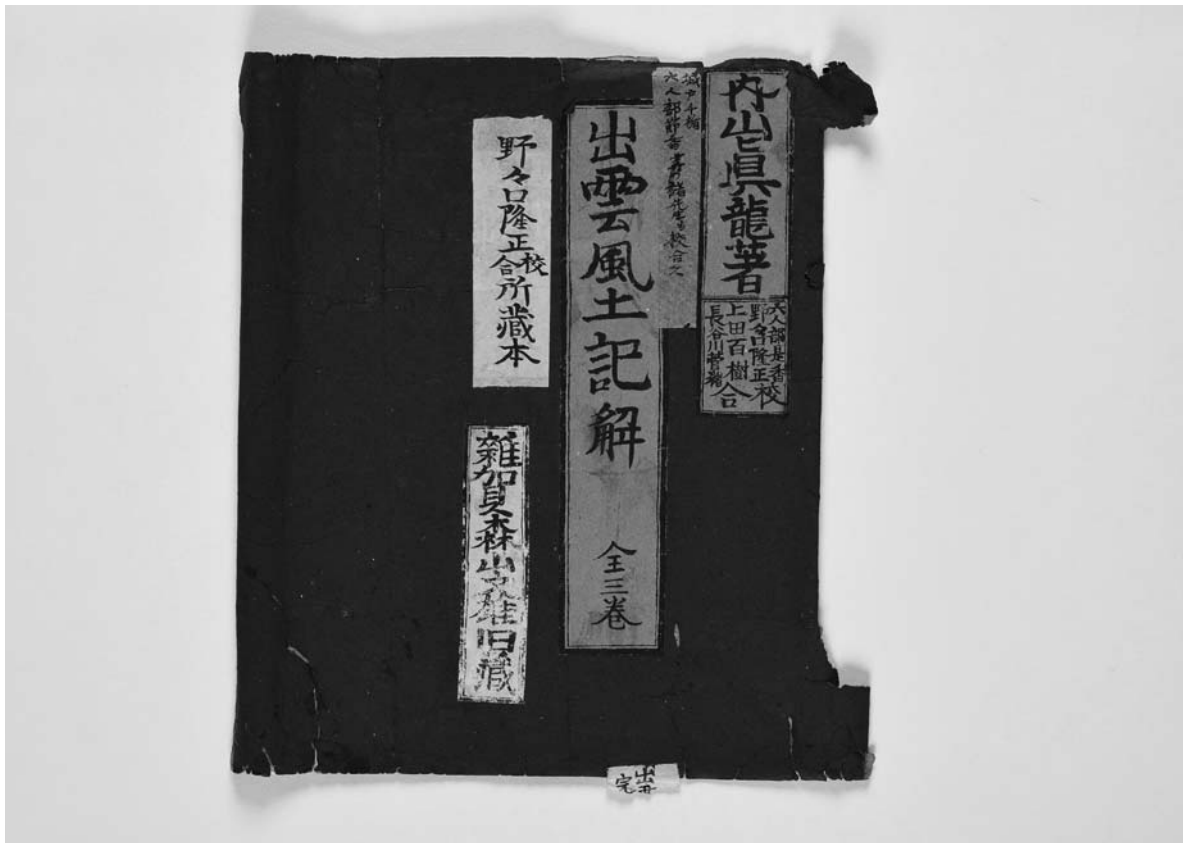 内山真龍著
六人部是香
野々口隆正校
上田百樹合
長谷川菅緒
城戸千楯
六人部節香
諸先生校合之
出雲風土記解
全三巻
野々口隆正校合所蔵本
雑加賀森山
雄旧蔵
出雲
完